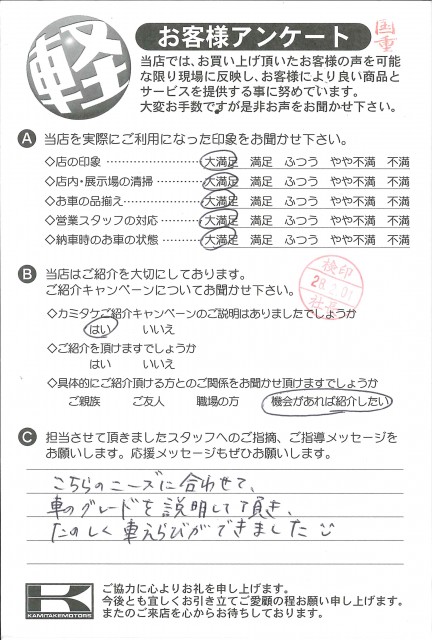 軽
お客様アンケート
国重
当店では、お買い上げ頂いたお客様の声を可能
な限り現場に反映し、お客様により良い商品と
サービスを提供する事に努めています。
大変お手数ですが是非お声をお聞かせ下さい。
A 当店を実際にご利用になった印象をお聞かせ下さい。
◇店の印象 大満足 満足 ふつう やや不満 不満
◇店内・展示場の清掃 大満足 満足 ふつう やや不満 不満
◇お車の品揃え 大満足 満足 ふつう やや不満 不満
◇営業スタッフの対応 大満足 満足 ふつう やや不満 不満
◇納車時のお車の状態 大満足 満足 ふつう やや不満 不満
B 当店はご紹介を大切にしております。
ご紹介キャンペーンについてお聞かせ下さい。
検印
社長
◇カミタケご紹介キャンペーンのご説明はありましたでしょうか
はい いいえ
◇ご紹介を頂けますでしょうか
はい いいえ
◇具体的にご紹介頂ける方とのご関係をお聞かせ頂けますでしょうか
ご親族 ご友人 職場の方 機会があれば紹介したい
C 担当させて頂きましたスタッフへのご指摘、ご指導メッセージを
お願いします。応援メッセージもぜひお願いします。
こちらのニーズに合わせて、
車のグレードを説明して頂き、
たのしく車えらびができました
K
KAMITAKEMOTORS
ご協力に心よりお礼を申し上げます。
今後とも宜しくお引き立てご愛顧の程お願い申し上げます。
またのご来店を心からお待ちしております。